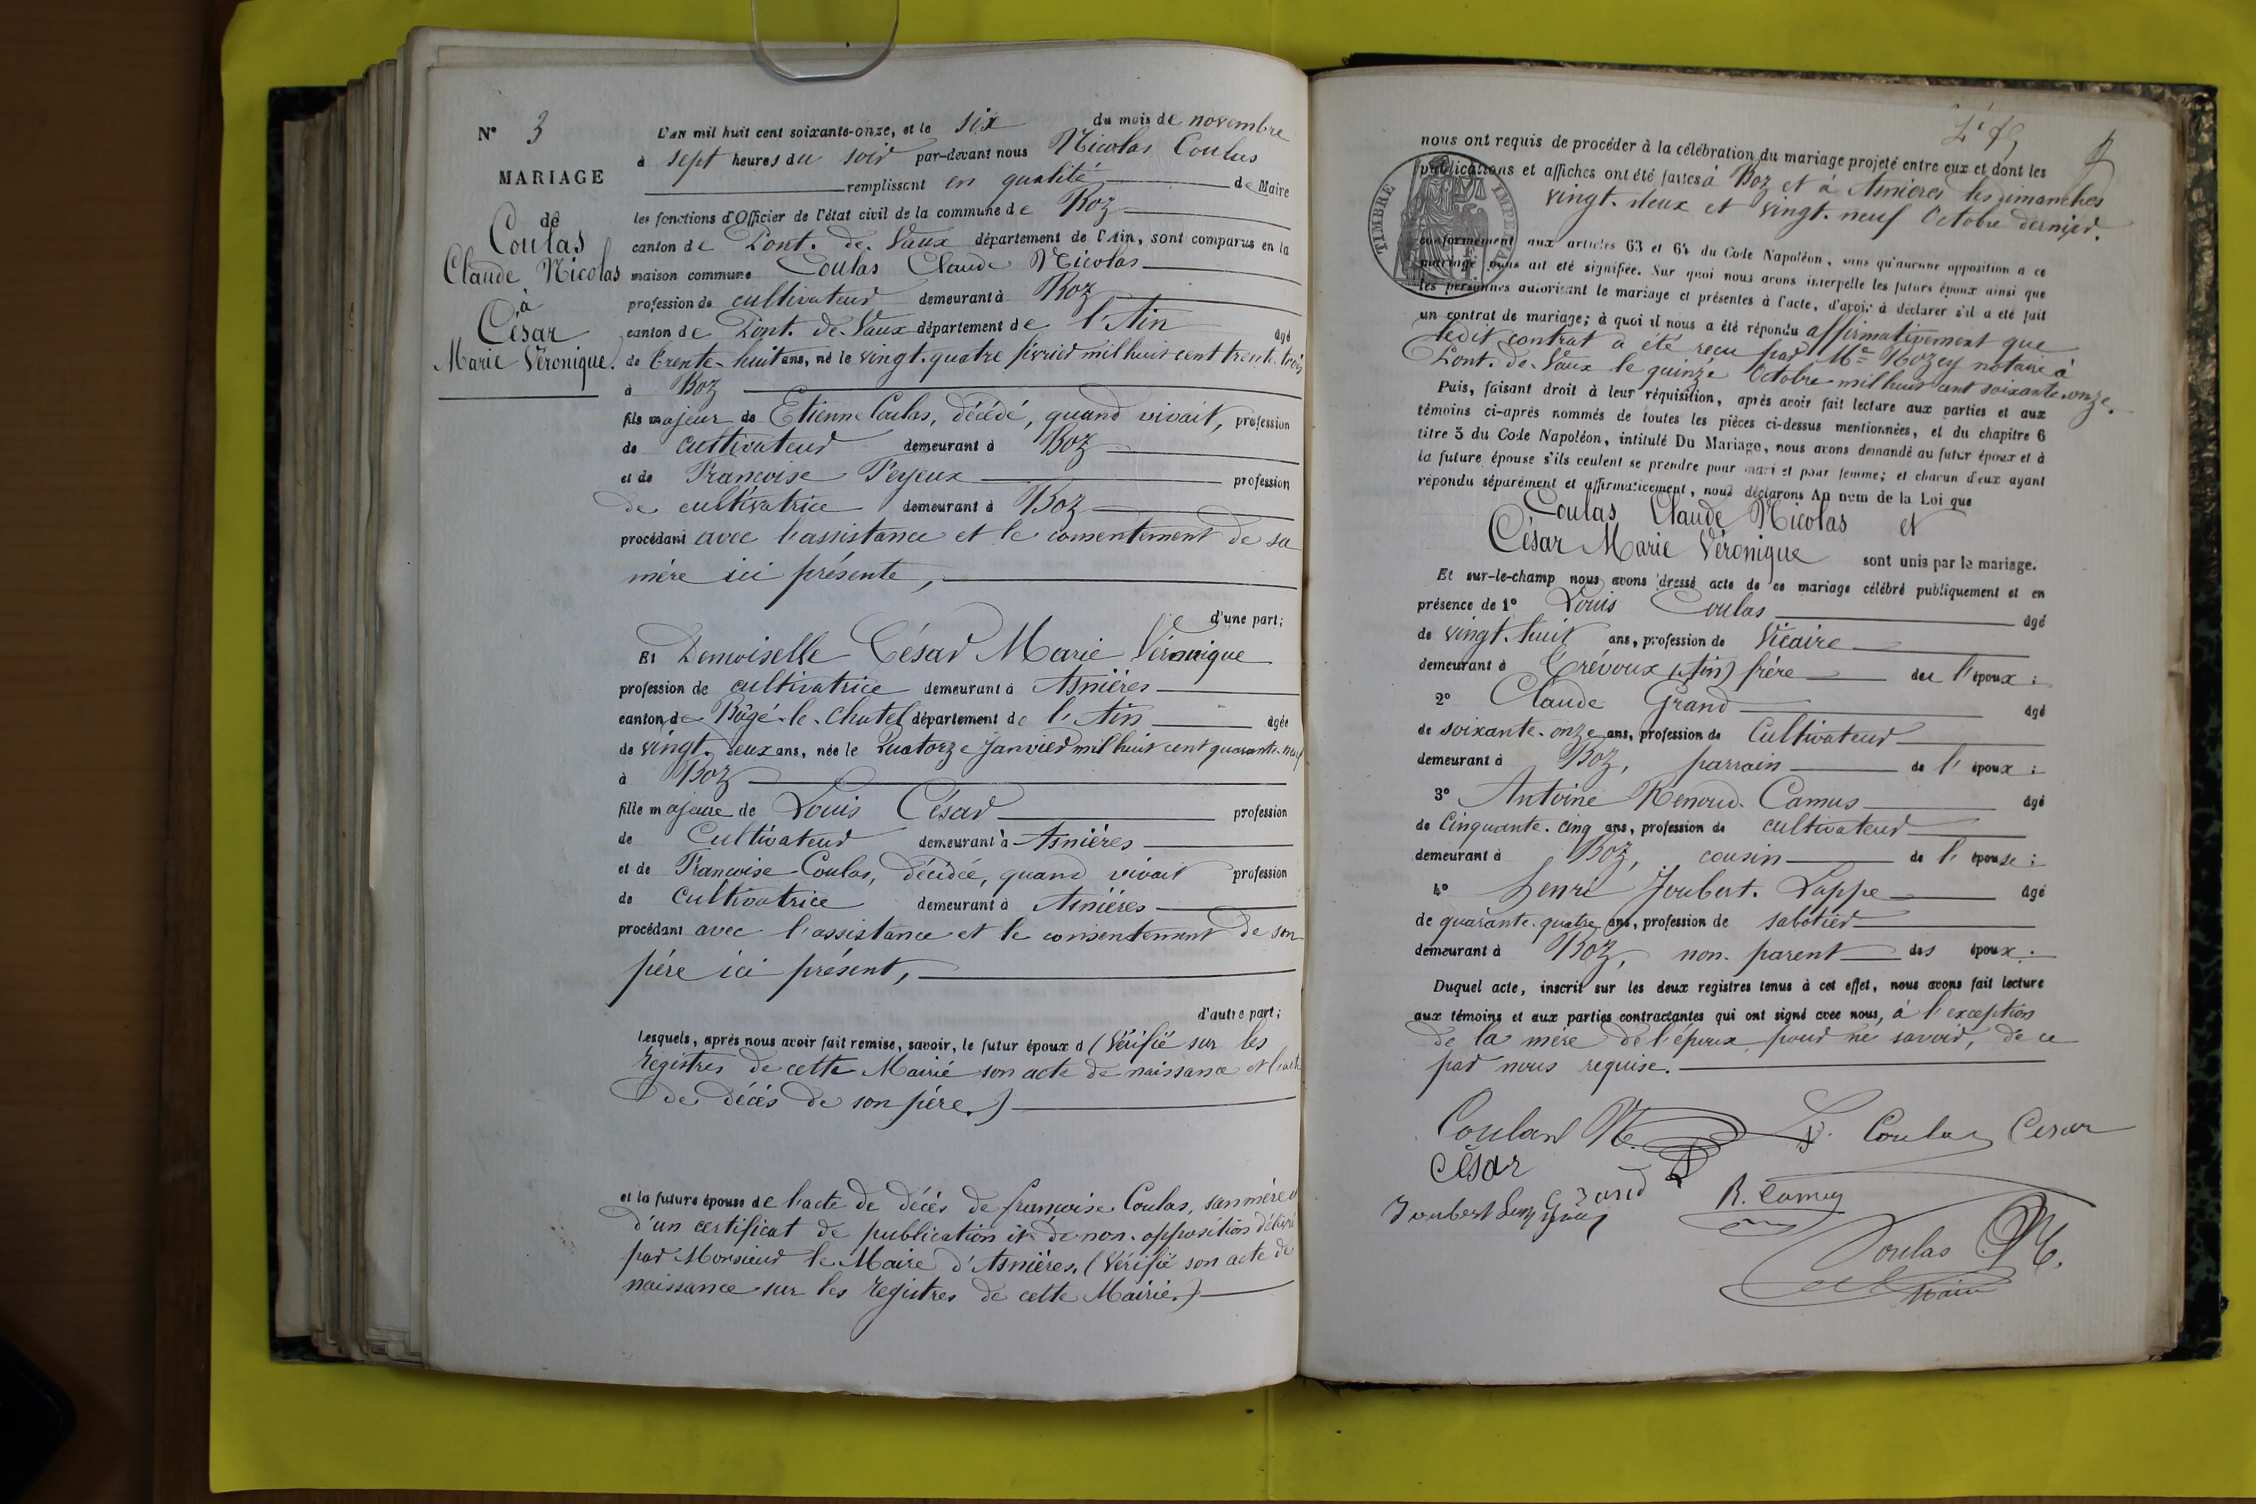 N° 3
MARIAGE
de
Coulas
Claude Nicolas
à
César
Marie Véronique.
L'an mil huit cent soixante-onze, et le six du mois de novembre
à sept heures du soir par-devant nous Nicolas Coulas
remplissant en qualité de Maire
les fonctions d'Officier de l'état civil de la commune de Boz
canton de Pont-de-Vaux département de l'Ain, sont comparus en la
maison commune Coulas Claude Nicolas
profession de cultivateur demeurant à Boz
canton de Pont-de-Vaux département de l'Ain âgé
de trente-huit ans, né le vingt-quatre février mil huit cent trente-trois
à Boz
fils majeur de Etienne Coulas, décédé, quand vivait, profession
de cultivateur demeurant à Boz
et de Françoise Peyeux profession
de cultivatrice demeurant à Boz
procédant avec l'assistance et le consentement de sa
mère ici présente,
d'une part;
Et Demoiselle César Marie Véronique
profession de cultivatrice demeurant à Asnières
canton de Bâgé-le-Chatel département de l'Ain âgée
de vingt-deux ans, née le Quatorze Janvier mil huit cent quarante-neuf
à Boz
fille majeure de Louis César profession
de Cultivateur demeurant à Asnières
et de Françoise Coulas, décédée, quand vivait profession
de Cultivatrice demeurant à Asnières
procédant avec l'assistance et le consentement de son
père ici présent,
d'autre part;
Lesquels, après nous avoir fait remise, savoir, le futur époux d (Vérifié sur les
registres de cette Mairie son acte de naissance et l'acte
de décès de son père.)
et la future épouse de l'acte de décès de françoise Coulas, sa mère et
d'un certificat de publication et de non-opposition délivré
par Monsieur le Maire d'Asnières. (Vérifié son acte de
naissance sur les registres de cette Mairie.)
TIMBRE IMPÉRIAL
nous ont requis de procéder à la célébration du mariage projeté entre eux et dont les
publications et affiches ont été faites à Boz et à Asnières les dimanches
vingt-deux et vingt-neuf Octobre dernier.
conformément aux articles 63 et 64 du Code Napoléon, sans qu'aucune opposition a ce
mariage nous ait été signifiée. Sur quoi nous avons interpellé les futurs époux ainsi que
les personnes autorisant le mariage et présentes à l'acte, d'avoir à déclarer s'il a été fait
un contrat de mariage; à quoi il nous a été répondu affirmativement que
ledit contrat a été reçu par Me Rozey notaire à
Pont-de-Vaux le quinze Octobre mil huit cent soixante-onze.
Puis, faisant droit à leur réquisition, après avoir fait lecture aux parties et aux
témoins ci-après nommés de toutes les pièces ci-dessus mentionnées, et du chapitre 6
titre 5 du Code Napoléon, intitulé Du Mariage, nous avons demandé au futur époux et à
la future épouse s'ils veulent se prendre pour mari et pour femme; et chacun d'eux ayant
répondu séparément et affirmativement, nous déclarons Au nom de la Loi que
Coulas Claude Nicolas et
César Marie Véronique sont unis par le mariage.
Et sur-le-champ nous avons dressé acte de ce mariage célébré publiquement et en
présence de 1° Louis Coulas âgé
de vingt-huit ans, profession de Vicaire
demeurant à Trévoux (Ain) frère de l'époux;
2° Claude Grand âgé
de soixante-onze ans, profession de Cultivateur
demeurant à Boz, parrain de l'époux;
3° Antoine Renoud-Camus âgé
de Cinquante-cinq ans, profession de cultivateur
demeurant à Boz, cousin de l'épouse;
4° Henri Joubert-Lappe âgé
de quarante-quatre ans, profession de sabotier
demeurant à Boz, non-parent des époux.
Duquel acte, inscrit sur les deux registres tenus à cet effet, nous avons fait lecture
aux témoins et aux parties contractantes qui ont signé avec nous, à l'exception
de la mère de l'époux, pour ne savoir, de ce
par nous requise.
Coulas N. L. Coulas Cesar
César
Grand R. Camus
Joubert
Coulas N.
Maire